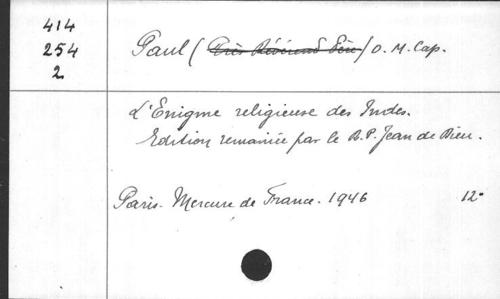 414
254
2
Paul (Très Révérend Père) O. M. Cap.
L'Enigme religieuse des Indes.
Edition remaniée par le R.P. Jean de Dieu.
Paris. Mercure de France. 1946 12°